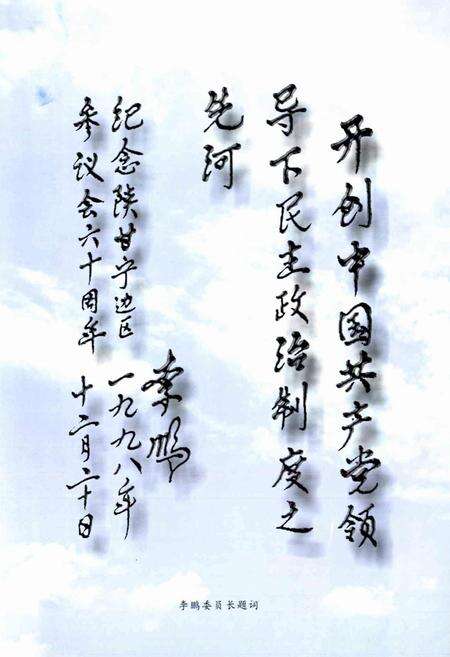 开创中国共产党领
导下民主政治制度之
先河
李鹏
纪念陕甘宁边区
参议会六十周年
一九九八年
十二月二十日
李鹏委员长题词